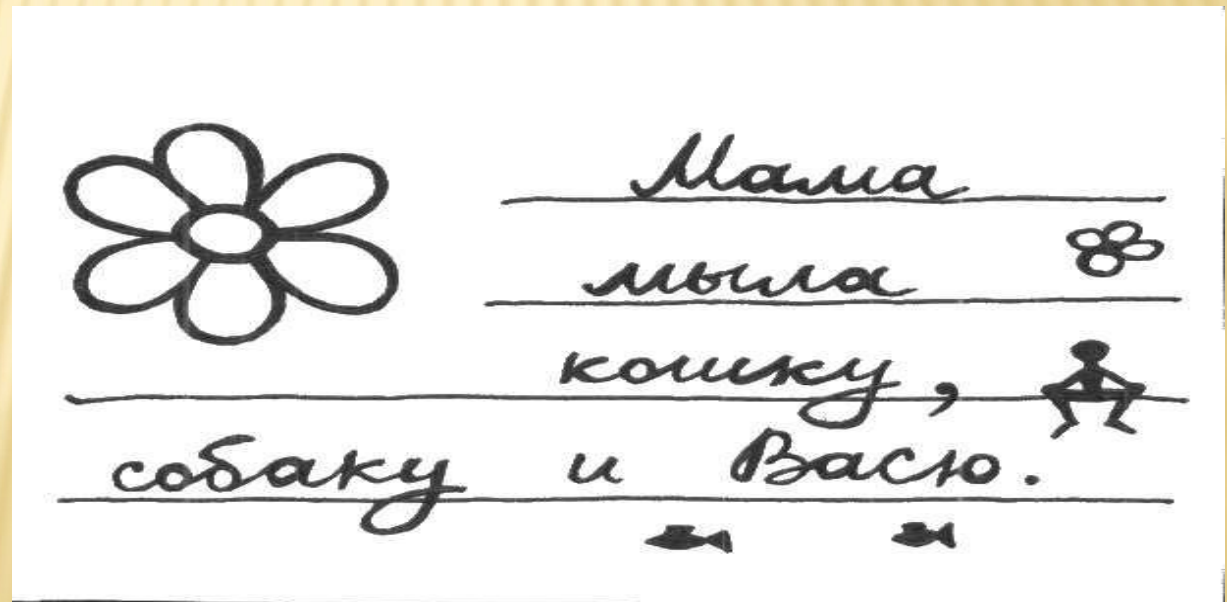 Мама
мыла
кошку,
собаку и Васю.